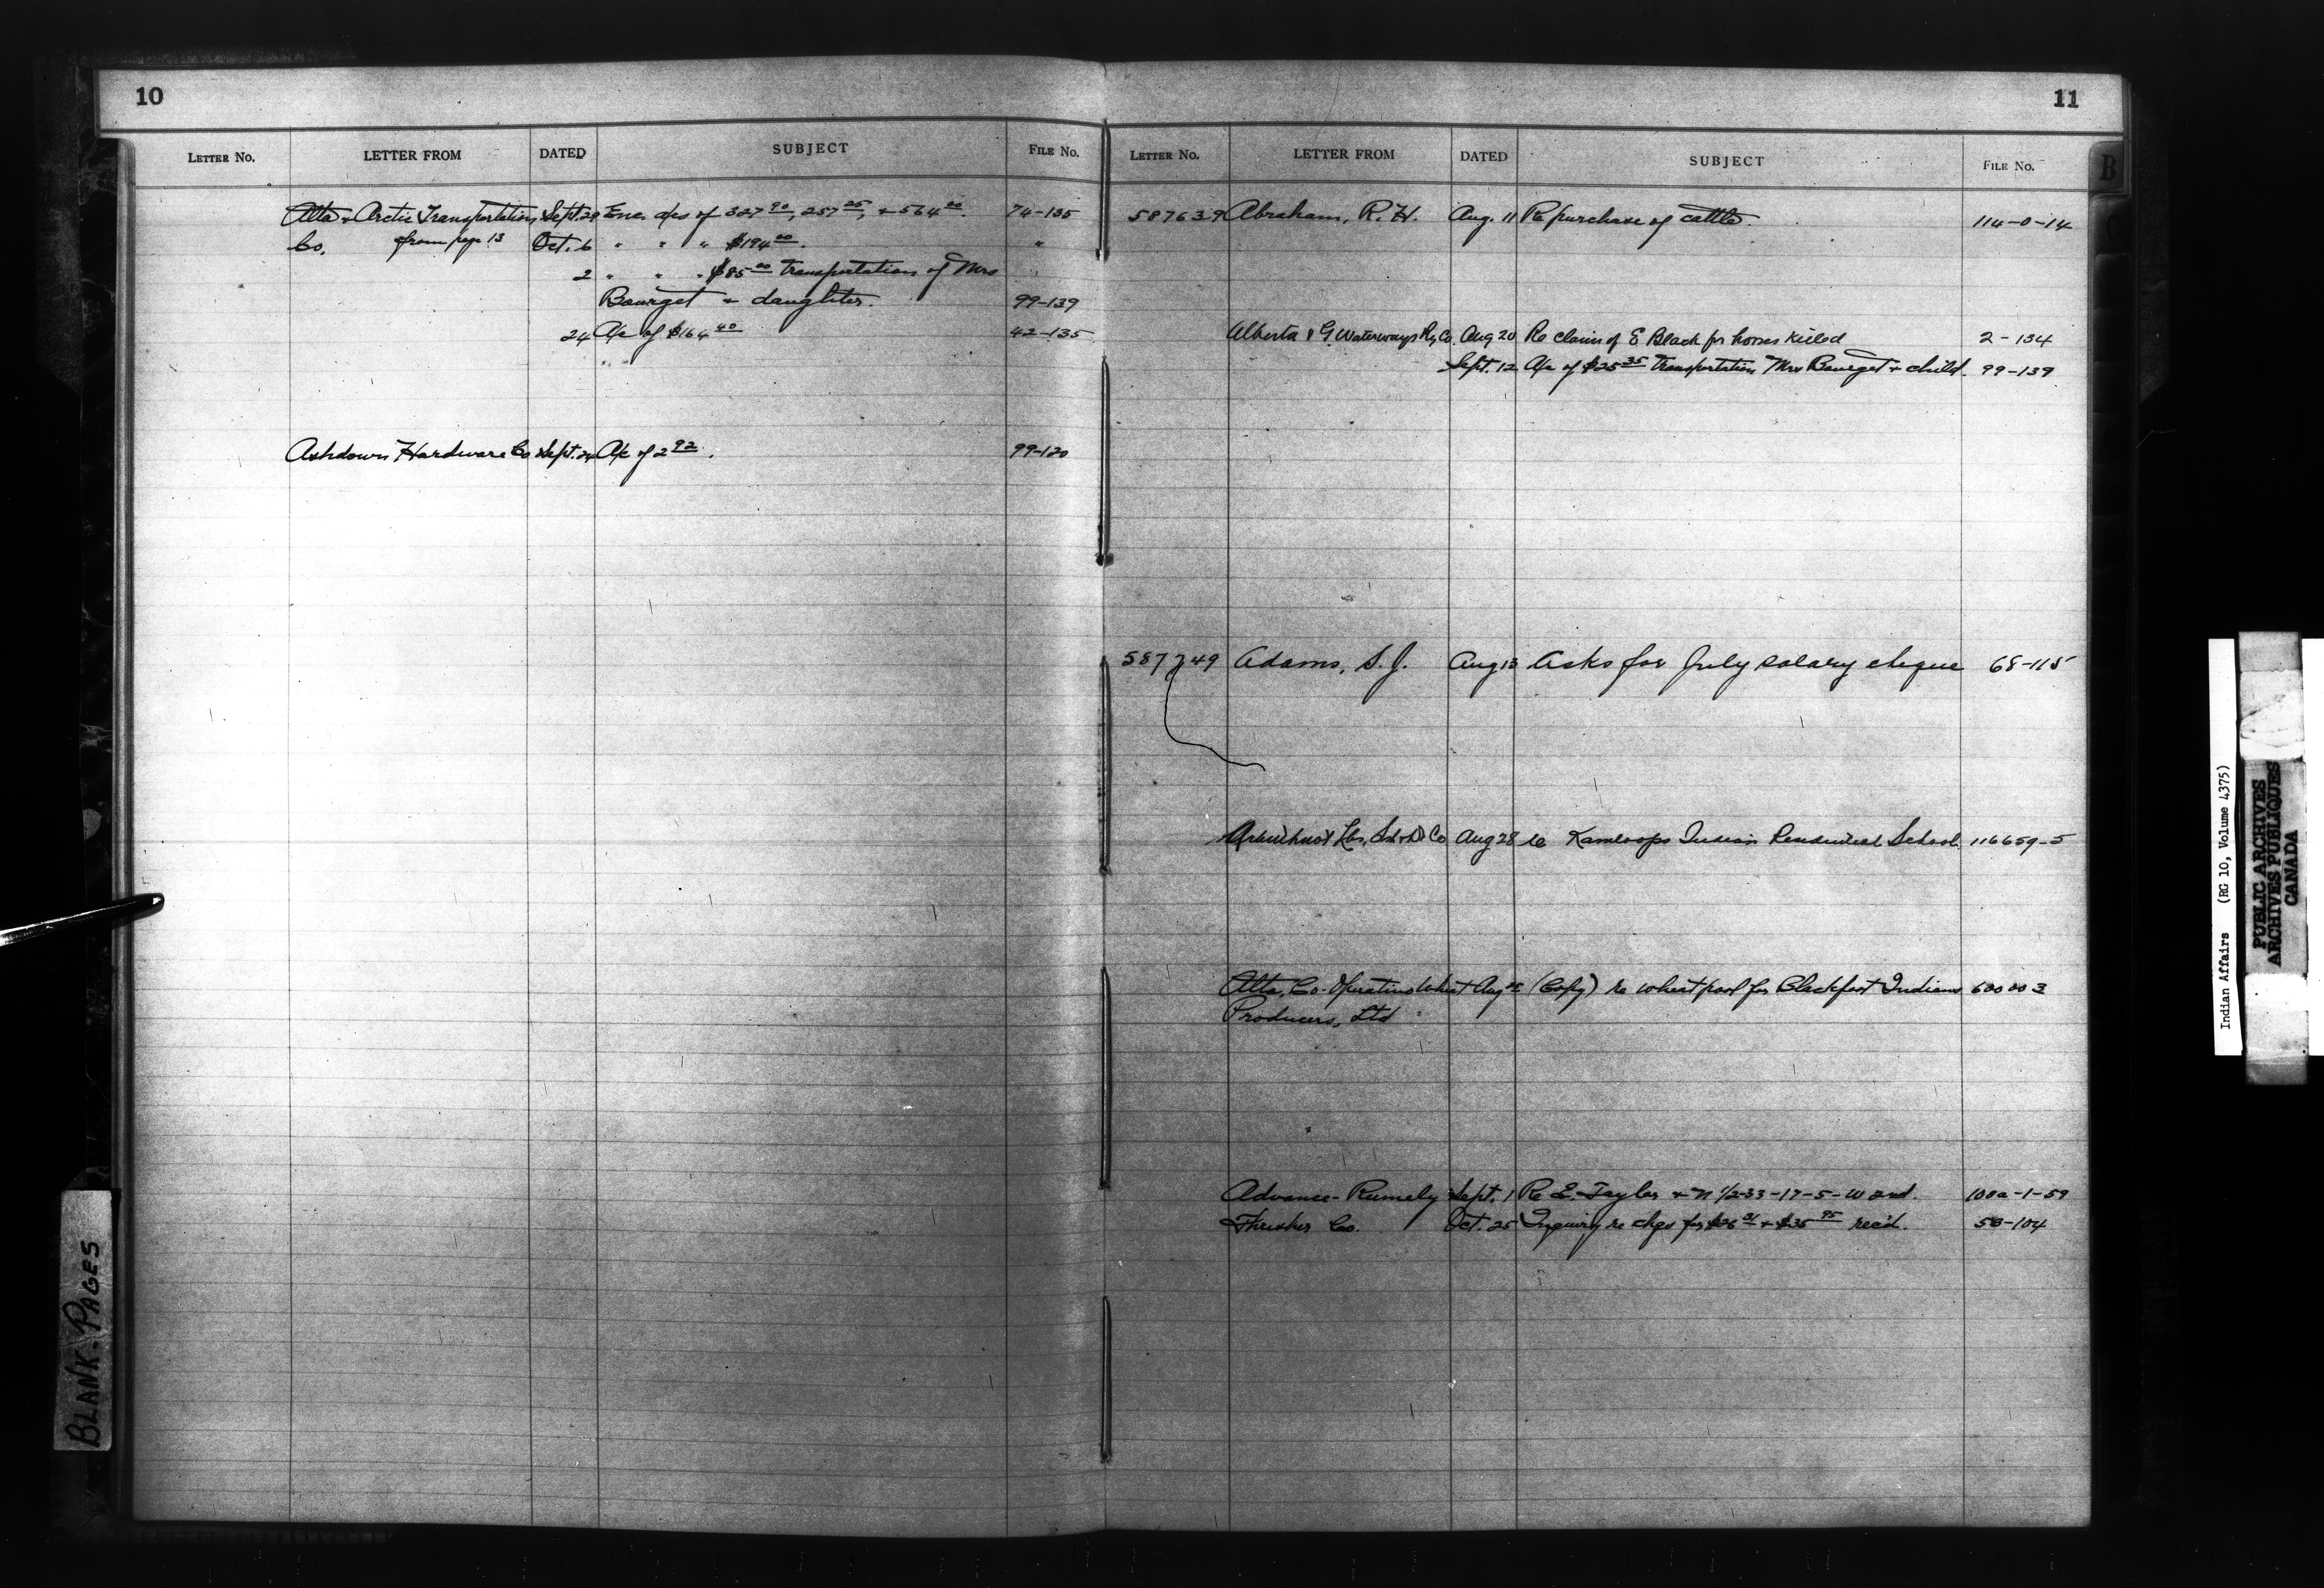 10
LETTER NO. LETTER FROM DATED SUBJECT FILE NO.
Alta & Arctic Transportation Sept. 29 Enc. a/cs of 327 90, 257 25, & 564 00. 74-135
Co. from page 13 Oct. 6 " " " $194 00. "
2 " " " $85 00 transportation of Mrs
Bourget & daughter. 99-139
24 A/c of $164 40 42-135
Ashdown Hardware Co Sept. 24 A/c of 2 92. 99-120
11
LETTER NO. LETTER FROM DATED SUBJECT FILE NO.
587639 Abraham, R. H. Aug. 11 Re purchase of cattle. 114-0-14
Alberta & G Waterways Ry Co. Aug 20 Re claim of E Black for horses killed 2-134
Sept. 12 A/c of $25 35 transportation Mrs Bourget & child. 99-139
587749 Adams, S. J. Aug 13 Asks for July salary cheque 68-115
Co Aug 28 re Kamloops Indian Residential School. 116659-5
Alta. Co-Operative Wheat Aug (Copy) re wheat pool for Blackfoot Indians 600003
Producers, Ltd
Advance-Rumely Sept. 1 Re E. Taylor & N 1/2-33-17-5-W 2nd. 100a-1-59
Thresher Co. Oct. 25 Inquiry re chqs for & $35 95 rec'd. 58-104
B
C
BLANK-PAGES
Indian Affairs (RG 10, Volume 4375)
PUBLIC ARCHIVES
ARCHIVES PUBLIQUES
CANADA